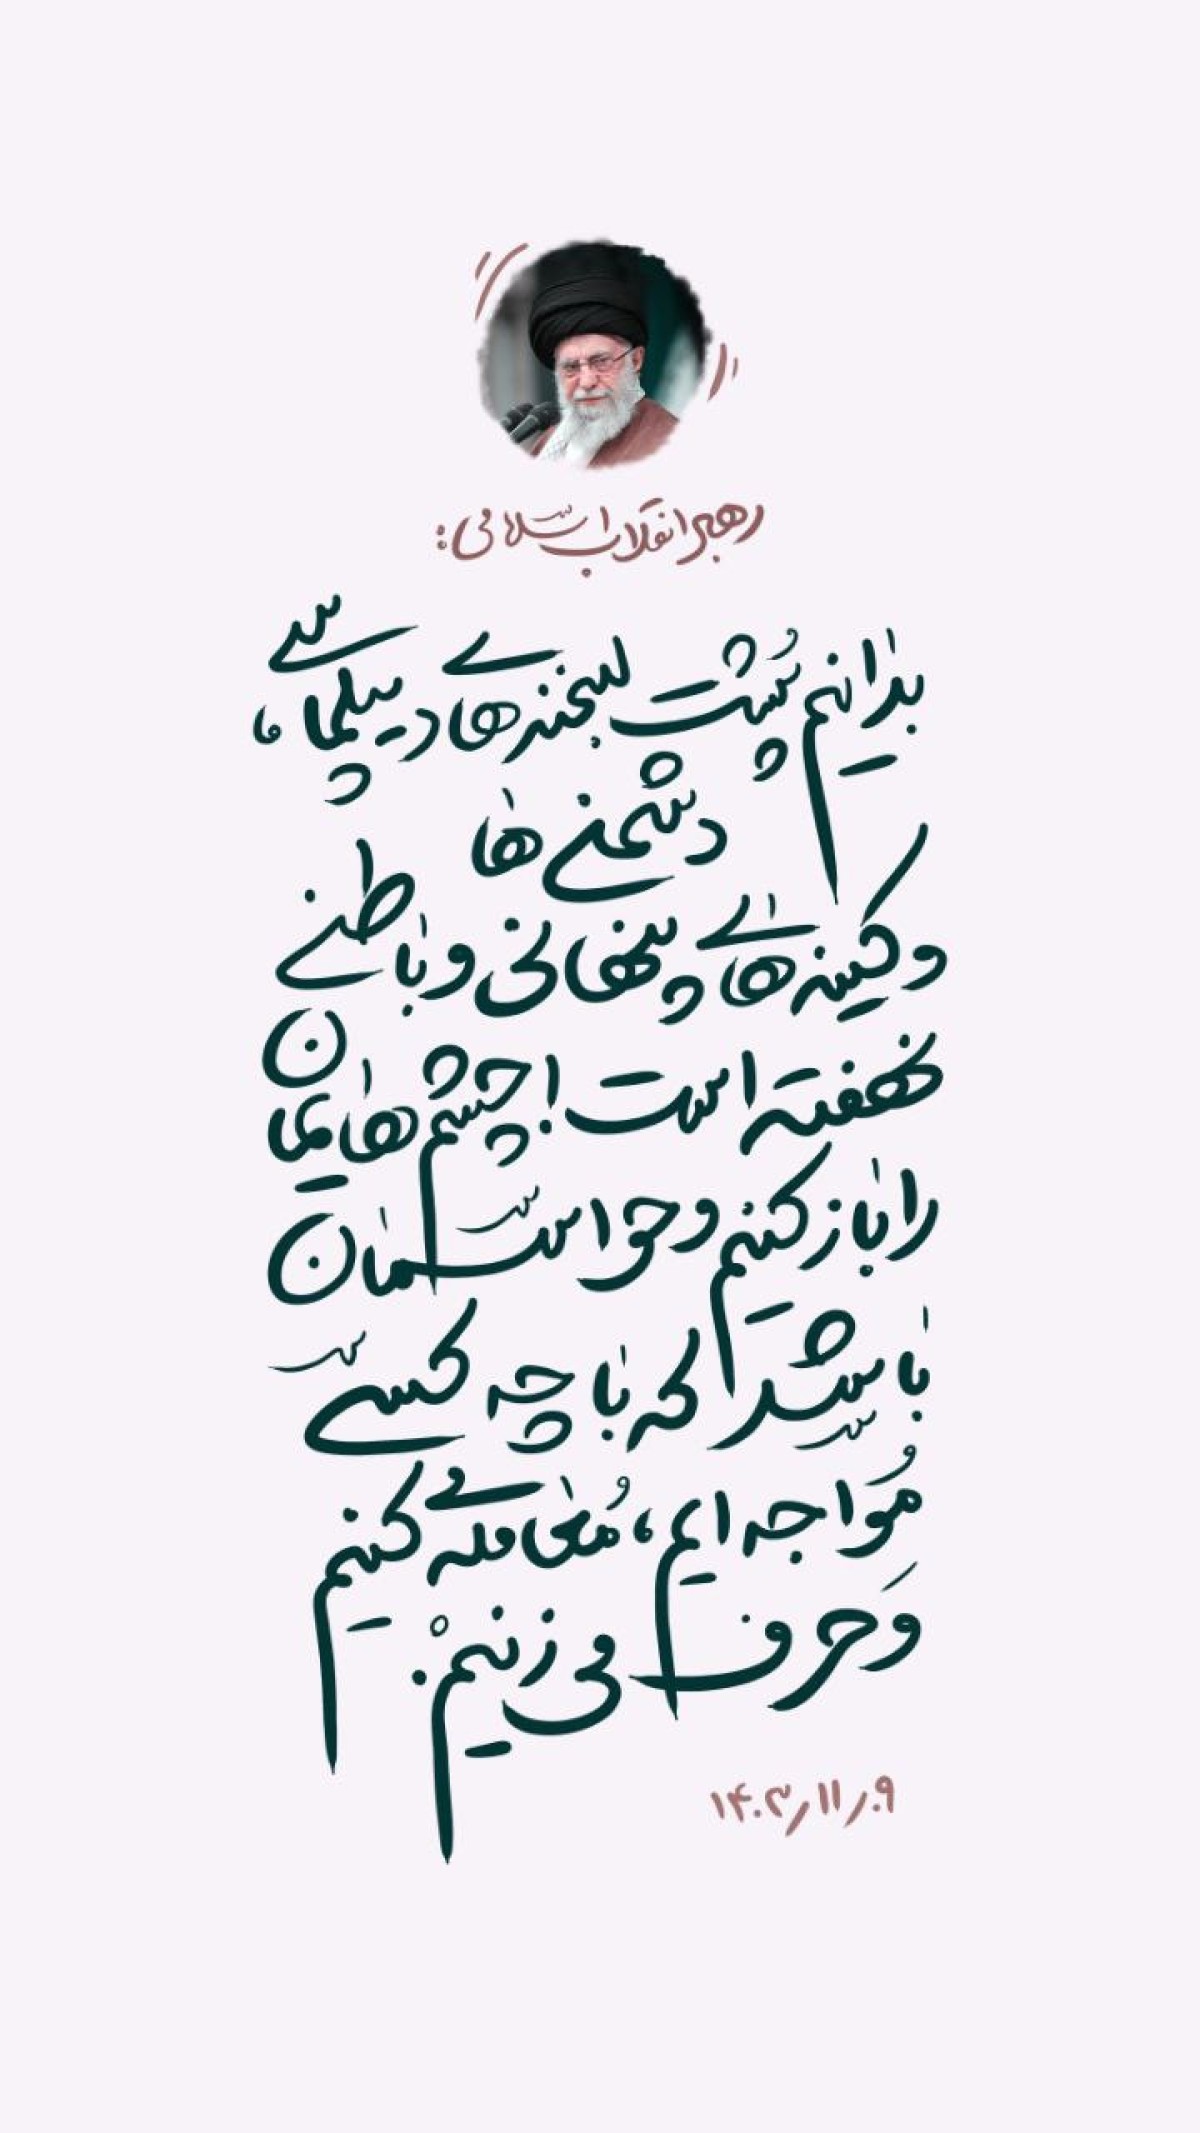 رهبر انقلاب اسلامی:
بدانیم پشت لبخندهای دیپلماسی،
دشمنی‌ها
و کینه‌های پنهانی و باطنی
نهفته است! چشم‌هایمان
را باز کنیم و حواسمان
باشد که با چه کسی
مُواجه ایم، مُعامله می کنیم
وَ حرف می زنیمْ.
۱۴۰۳/۱۱/۰۹